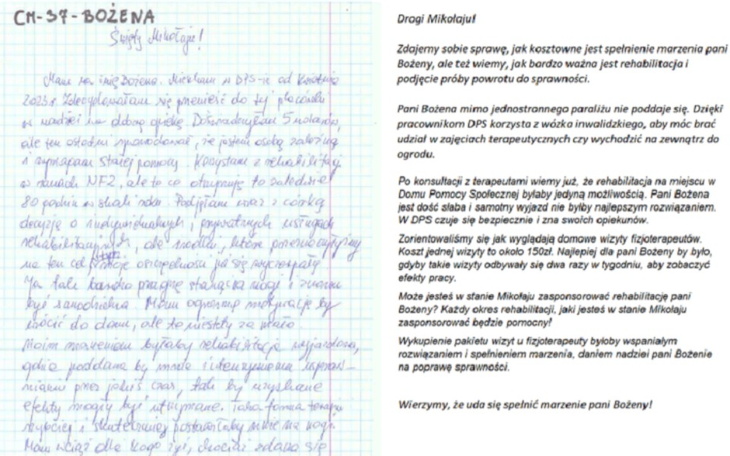 CM-37-BOŻENA
Święty Mikołaju!
Mam na imię Bożena. Mieszkam w DPS-ie od kwietnia
2023 r. Zdecydowałam się przenieść do tej placówki
w nadziei na dobrą opiekę. Doświadczyłam 5 udarów,
ale ten ostatni spowodował, że jestem osobą zależną
i wymagam stałej pomocy. Korzystam z rehabilitacji
w ramach NFZ, ale to co otrzymuję to zaledwie
80 godzin w skali roku. Podjęłam wraz z córką
decyzję o indywidualnych, prywatnych
rehabilitacyjnych, ale środki, które
na ten cel oszczędności już się wyczerpały
Ja tak bardzo pragnę stanąć na nogi i znowu
być samodzielna. Mam ogromną motywację by
wrócić do domu, ale to niestety za mało.
Moim marzeniem byłaby rehabilitacja wyjazdowa,
gdzie poddana by mnie intensywnemu
przez jakiś czas, tak by uzyskane
efekty mogły być utrzymane. Taka forma terapii
szybciej i skuteczniej postawiłaby mnie na nogi.
Mam wciąż dla kogo żyć, chociaż zdaję się
Drogi Mikołaju!
Zdajemy sobie sprawę, jak kosztowne jest spełnienie marzenia pani
Bożeny, ale też wiemy, jak bardzo ważna jest rehabilitacja i
podjęcie próby powrotu do sprawności.
Pani Bożena mimo jednostrannego paraliżu nie poddaje się. Dzięki
pracownikom DPS korzysta z wózka inwalidzkiego, aby móc brać
udział w zajęciach terapeutycznych czy wychodzić na zewnątrz do
ogrodu.
Po konsultacji z terapeutami wiemy już, że rehabilitacja na miejscu w
Domu Pomocy Społecznej byłaby jedyną możliwością. Pani Bożena
jest dość słaba i samotny wyjazd nie byłby najlepszym rozwiązaniem.
W DPS czuje się bezpiecznie i zna swoich opiekunów.
Zorientowaliśmy się jak wyglądają domowe wizyty fizjoterapeutów.
Koszt jednej wizyty to około 150zł. Najlepiej dla pani Bożeny by było,
gdyby takie wizyty odbywały się dwa razy w tygodniu, aby zobaczyć
efekty pracy.
Może jesteś w stanie Mikołaju zasponsorować rehabilitację pani
Bożeny? Każdy okres rehabilitacji, jaki jesteś w stanie Mikołaju
zasponsorować będzie pomocny!
Wykupienie pakietu wizyt u fizjoterapeuty byłoby wspaniałym
rozwiązaniem i spełnieniem marzenia, daniem nadziei pani Bożenie
na poprawę sprawności.
Wierzymy, że uda się spełnić marzenie pani Bożeny!